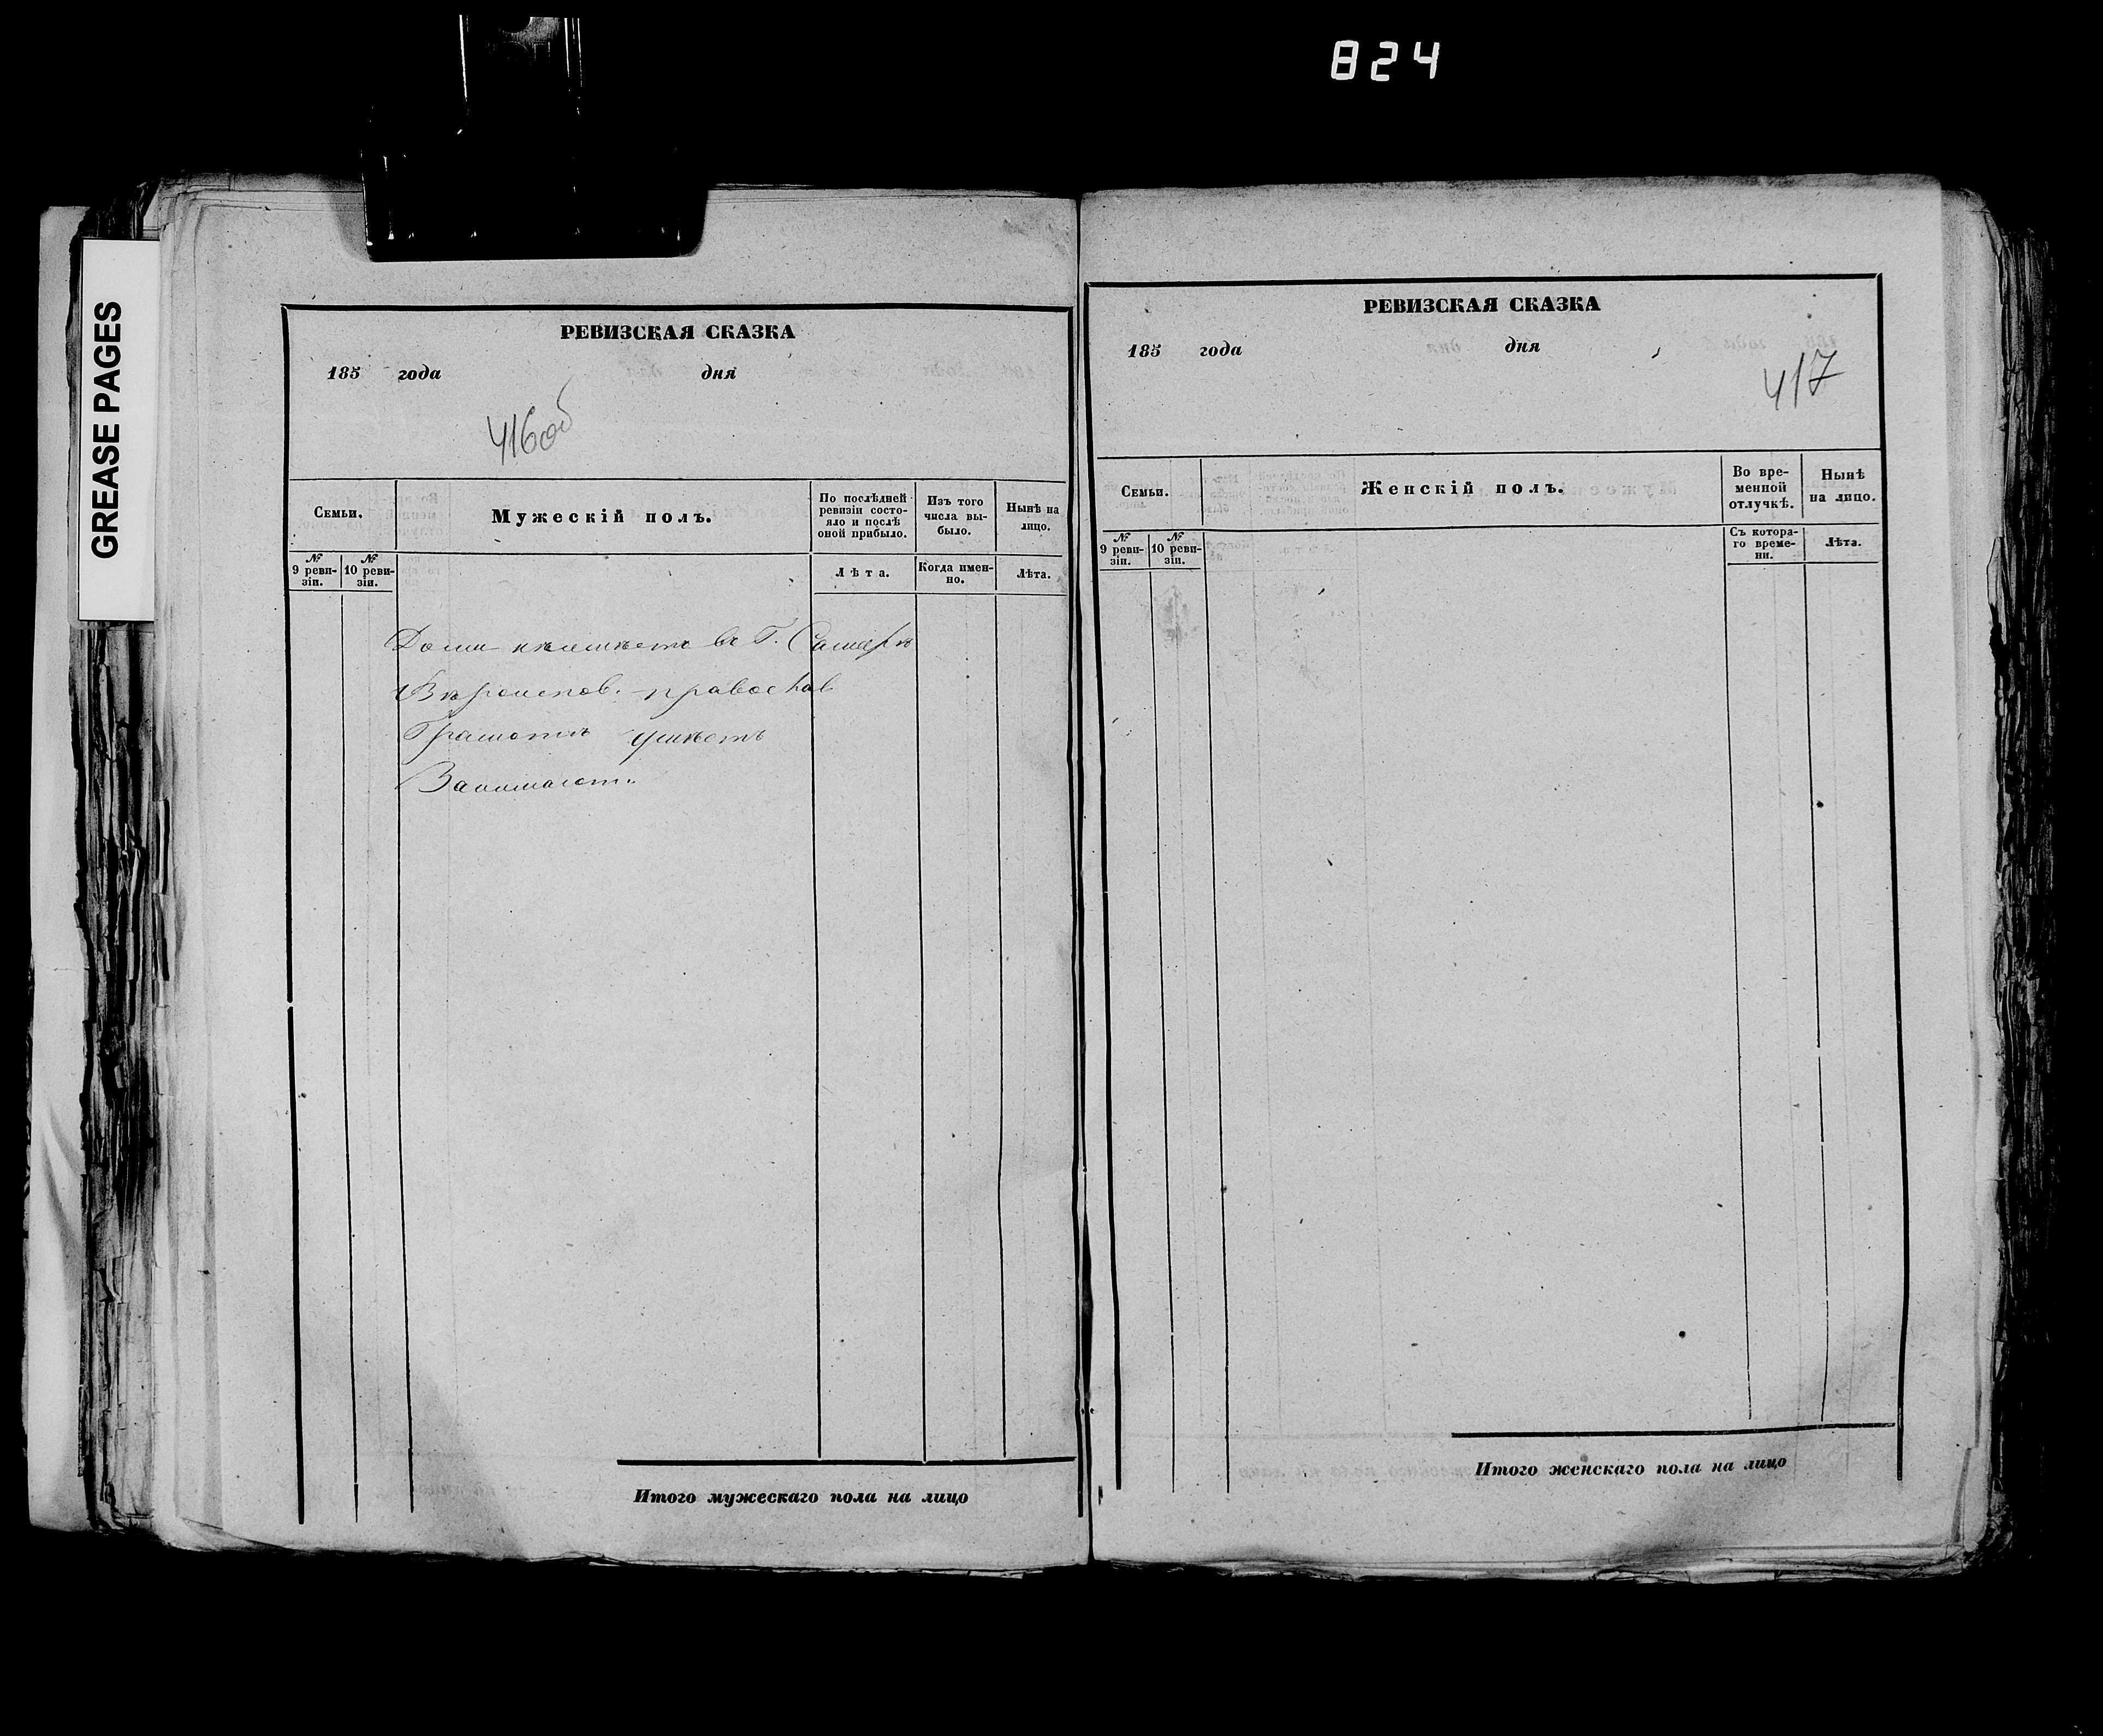 824
GREASE PAGES
РЕВИЗСКАЯ СКАЗКА
185 года дня
416об
Семьи.
Мужескій полъ.
По послѣдней
ревизіи состо-
яло и послѣ
оной прибыло.
Изъ того
числа вы-
было.
Нынѣ на
лицо.
№
9 реви-
зіи.
№
10 реви-
зіи.
Лѣта.
Когда имен-
но.
Лѣта.
Домъ имѣетъ въ Г. Самарѣ
Вѣроиспов. православ
Грамотѣ умѣетъ
Итого мужескаго пола на лицо
РЕВИЗСКАЯ СКАЗКА
185 года дня
417
Семьи.
Женскій полъ.
Во вре-
менной
отлучкѣ.
Нынѣ
на лицо.
№
9 реви-
зіи.
№
10 реви-
зіи.
Съ котора-
го време-
ни.
Лѣта.
Итого женскаго пола на лицо